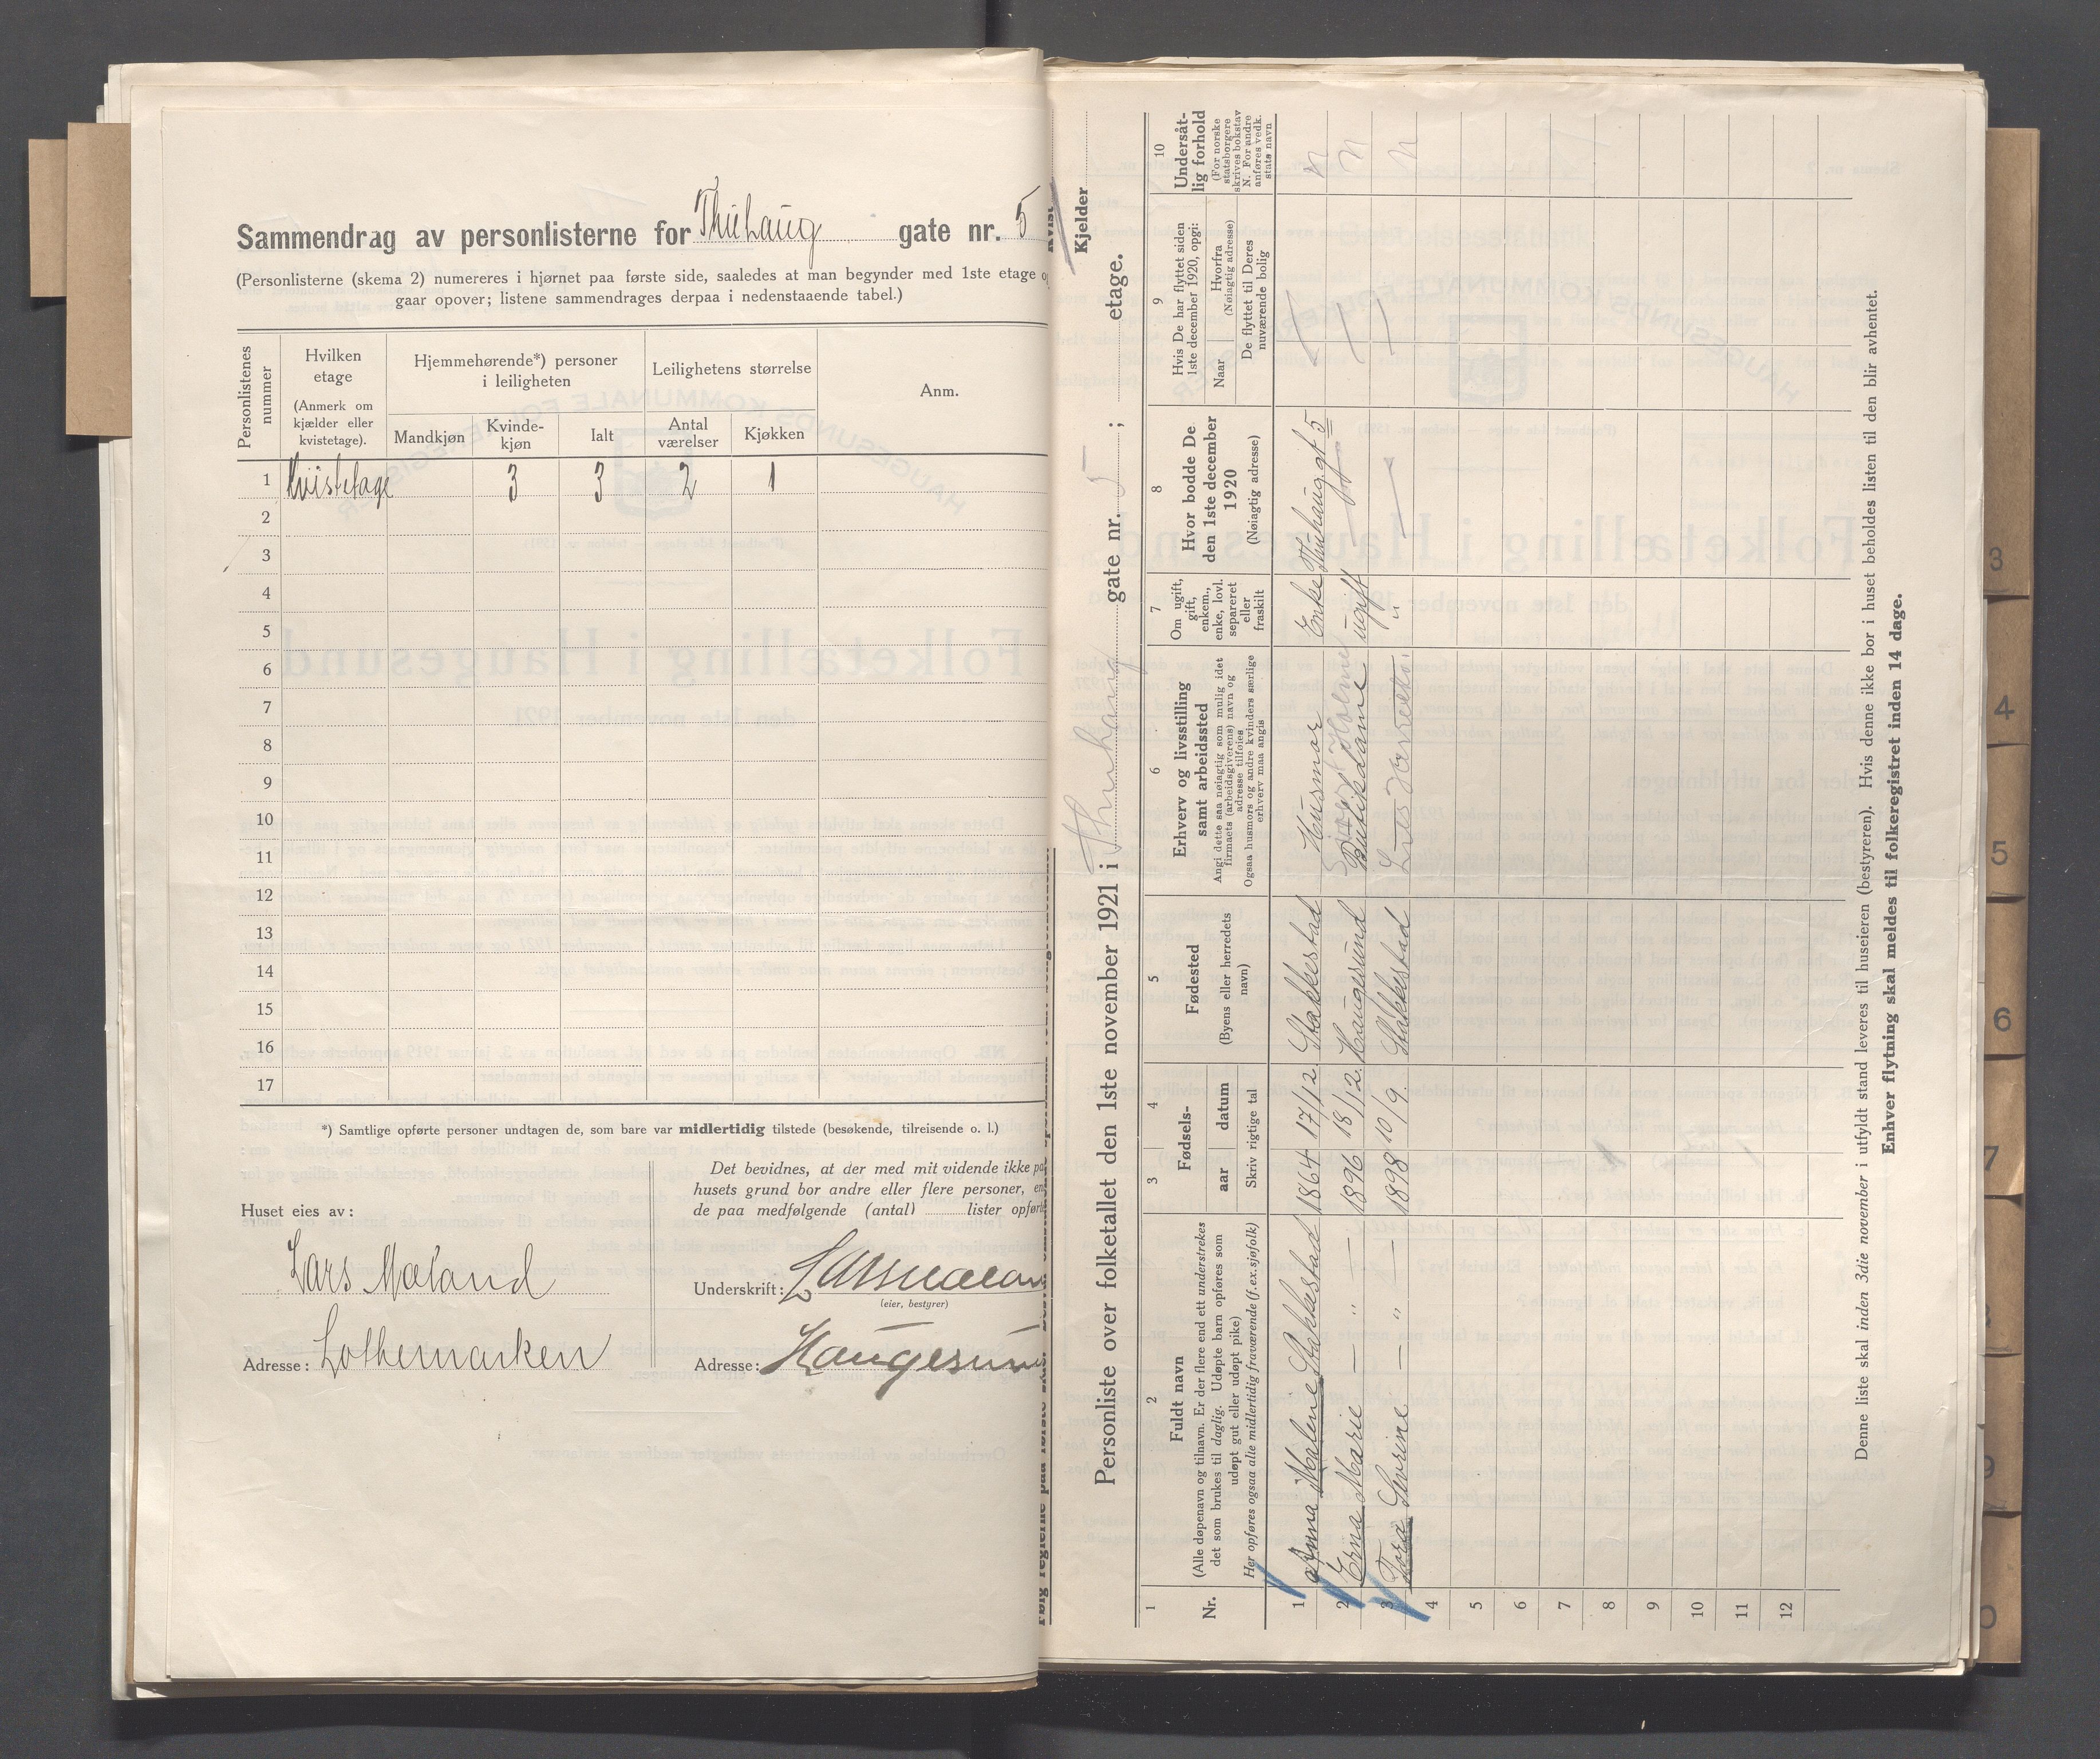 Sammendrag av personlisterne for Thuhaug gate nr. 5
(Personlisterne (skema 2) numereres i hjørnet paa første side, saaledes at man begynder med 1ste etage
gaar opover; listene sammendrages derpaa i nedenstaaende tabel.)
Personlistenes nummer
Hvilken etage
(Anmerk om kjælder eller kvistetage).
Hjemmehørende*) personer i leiligheten
Mandkjøn
Kvindekjøn
Ialt
Leilighetens størrelse
Antal værelser
Kjøkken
Anm.
1 Kvistetage 3 3 2 1
2
3
4
5
6
7
8
9
10
11
12
13
14
15
16
17
*) Samtlige opførte personer undtagen de, som bare var midlertidig tilstede (besøkende, tilreisende o. l.)
Huset eies av:
Lars Mæland
Adresse: Lothemarken
Det bevidnes, at der med mit vidende ikke
husets grund bor andre eller flere personer,
de paa medfølgende (antal) lister
Underskrift:
(eier, bestyrer)
Adresse: Haugesund
Kjelder
Personliste over folketallet den 1ste november 1921 i Thuhaug gate nr. 5 ; etage.
1
Nr.
2
Fuldt navn
(Alle døpenavn og tilnavn. Er der flere end ett understrekes
det som brukes til daglig. Udøpte barn opføres som
udøpt gut eller udøpt pike)
Her opføres ogsaa alle midlertidig fraværende (f. ex. sjøfolk)
3 4
Fødsels-
aar datum
Skriv rigtige tal
5
Fødested
(Byens eller herredets navn)
6
Erhverv og livsstilling
samt arbeidssted
Angi dette saa nøiagtig som mulig idet
firmaets (arbeidsgiverens) navn og
adresse tilføies
Ogsaa husmors og andre kvinders særlige
erhverv maa angis
7
Om ugift, gift, enkem., enke, lovl. separeret eller fraskilt
8
Hvor bodde De
den 1ste december
1920
(Nøiagtig adresse)
9
Hvis De har flyttet siden
1ste december 1920, opgi:
Naar
Hvorfra
(Nøiagtig adresse)
De flyttet til Deres
nuværende bolig
10
Undersåtlig forhold
(For norske
statsborgere
skrives bokstav
N. For andre
anføres vedk.
stats navn
1 Anna Malene Stakkestad 1864 17/12 Stakkestad Husmor Enke Thuhauggt 5 n
2 Erna Marie — " — 1896 18/12 Haugesund Butikdame ugift n
3 Tora Sevrine — " — 1898 10/9. Stakkestad " n
4
5
6
7
8
9
10
11
12
Denne liste skal inden 3die november i utfyldt stand leveres til huseieren (bestyreren). Hvis denne ikke bor i huset beholdes listen til den blir avhentet.
Enhver flytning skal meldes til folkeregistret inden 14 dage.
3
4
5
6
7
9
0